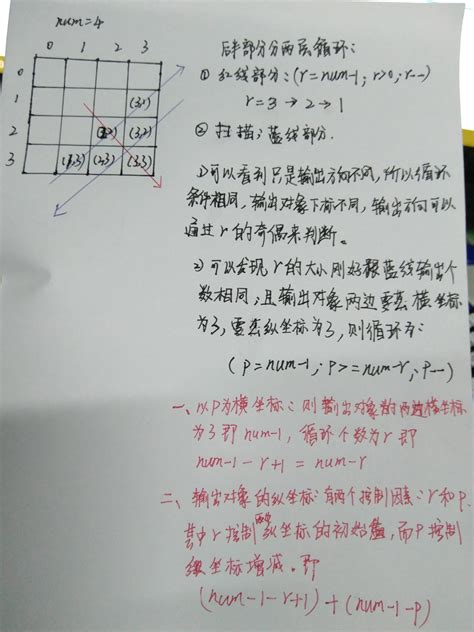 num=4
0 1 2 3
0
1 (3,1)
2 (2,2) (3,2)
3 (1,3) (2,3) (3,3)
后半部分分两层循环:
① 红线部分:(r=num-1; r>0; r--)
r=3→2→1
② 扫描;蓝线部分.
1)可以看到只是输出方向不同,所以循环
条件相同,输出对象下标不同,输出方向可以
通过r的奇偶来判断。
2)可以发现r的大小刚好跟蓝线输出个
数相同;且输出对象两边要素横坐标
为3,要素纵坐标为3,则循环为:
(p=num-1;p>=num-r;p--)
一、以P为横坐标:则输出对象的两边横坐标
为3即num-1,循环个数为r即
num-1-r+1=num-r
二、输出对象的纵坐标有两个控制因素:r和p.
其中r控制纵坐标的初始值,而P控制
纵坐标增减。即
(num-1-r+1)+(num-1-p)